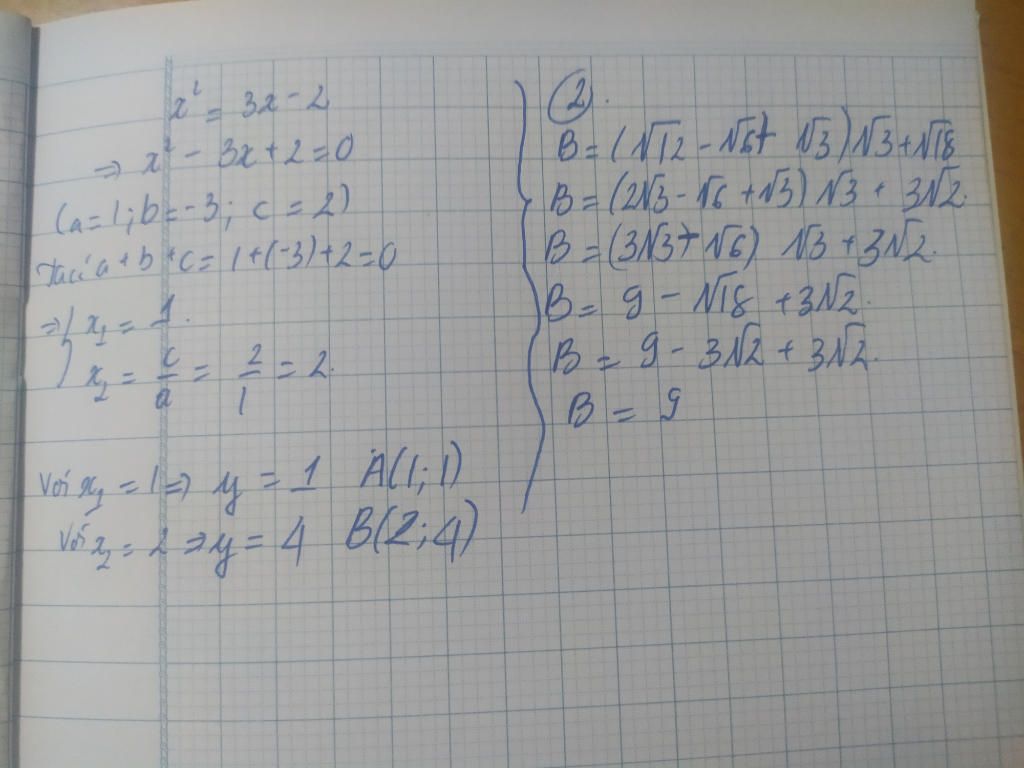 x² = 3x - 2
⇒ x² - 3x + 2 = 0
(a = 1; b = -3; c = 2)
Ta có a + b + c = 1 + (-3) + 2 = 0
⇒ { x₁ = 1.
x₂ = c/a = 2/1 = 2.
Với x₁ = 1 ⇒ y = 1 A(1; 1)
Với x₂ = 2 ⇒ y = 4 B(2; 4)
②.
B = (√12 - √6 + √3)√3 + √18
B = (2√3 - √6 + √3) √3 + 3√2.
B = (3√3 - √6) √3 + 3√2.
B = 9 - √18 + 3√2.
B = 9 - 3√2 + 3√2.
B = 9